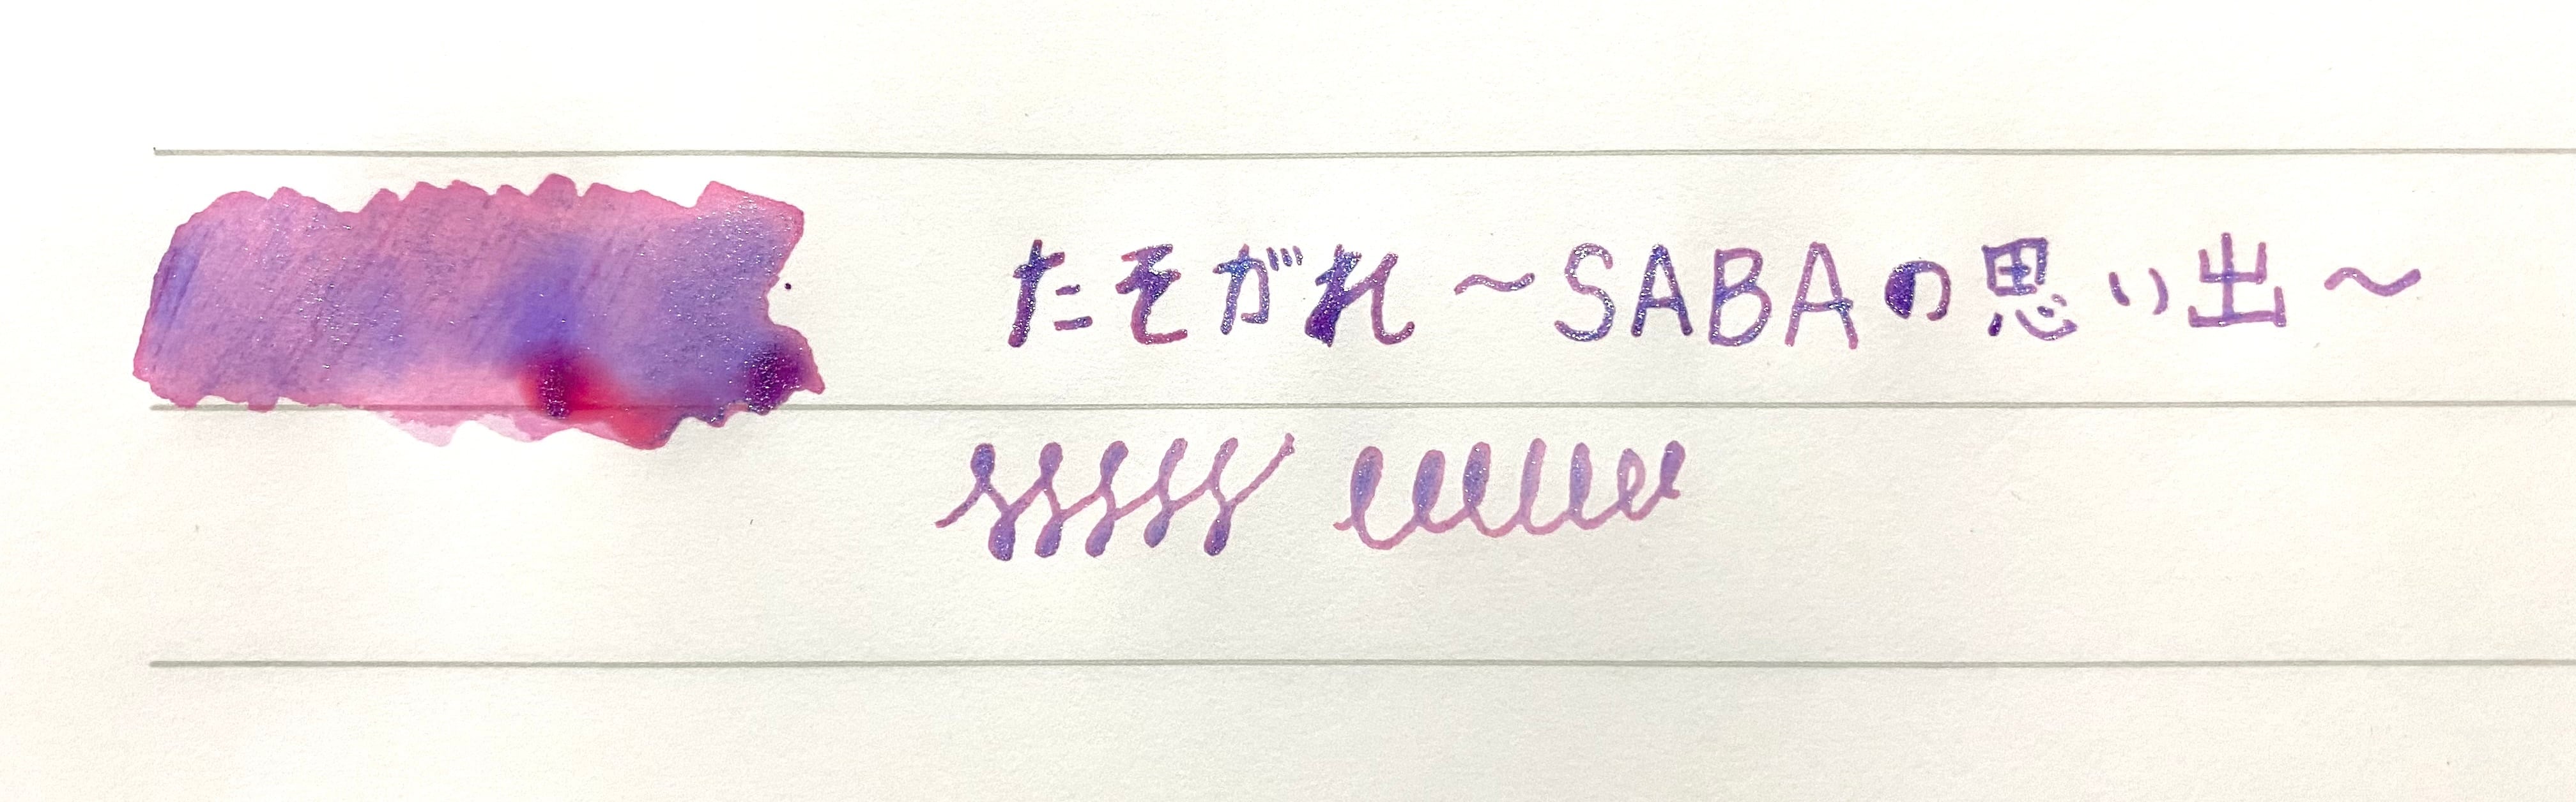 たそがれ〜SABAの思い出〜